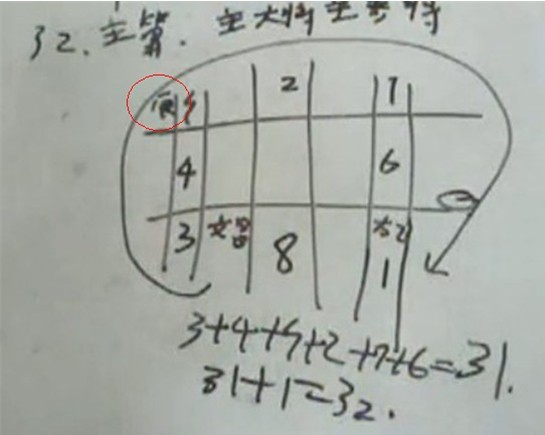 32. 主算. 主大将 主参将
9 2 7
4 6
3 文昌 8 太乙 1
3+4+9+2+7+6=31.
31+1=32.